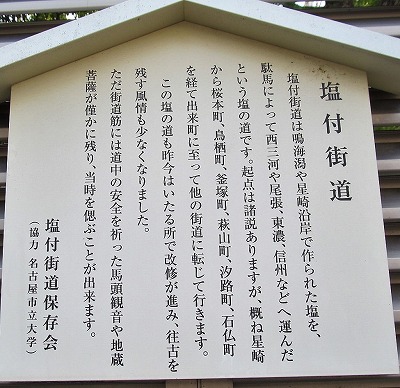 塩付街道
塩付街道は鳴海潟や星崎沿岸で作られた塩を、
駄馬によって西三河や尾張、東濃、信州などへ運んだ
という塩の道です。起点は諸説ありますが、概ね星崎
から桜本町、鳥栖町、釜塚町、萩山町、汐路町、石仏町
を経て出来町に至って他の街道に転じて行きます。
この塩の道も昨今はいたる所で改修が進み、往古を
残す風情も少なくなりました。
ただ街道筋には道中の安全を祈った馬頭観音や地蔵
菩薩が僅かに残り、当時を偲ぶことが出来ます。
塩付街道保存会
(協力 名古屋市立大学)